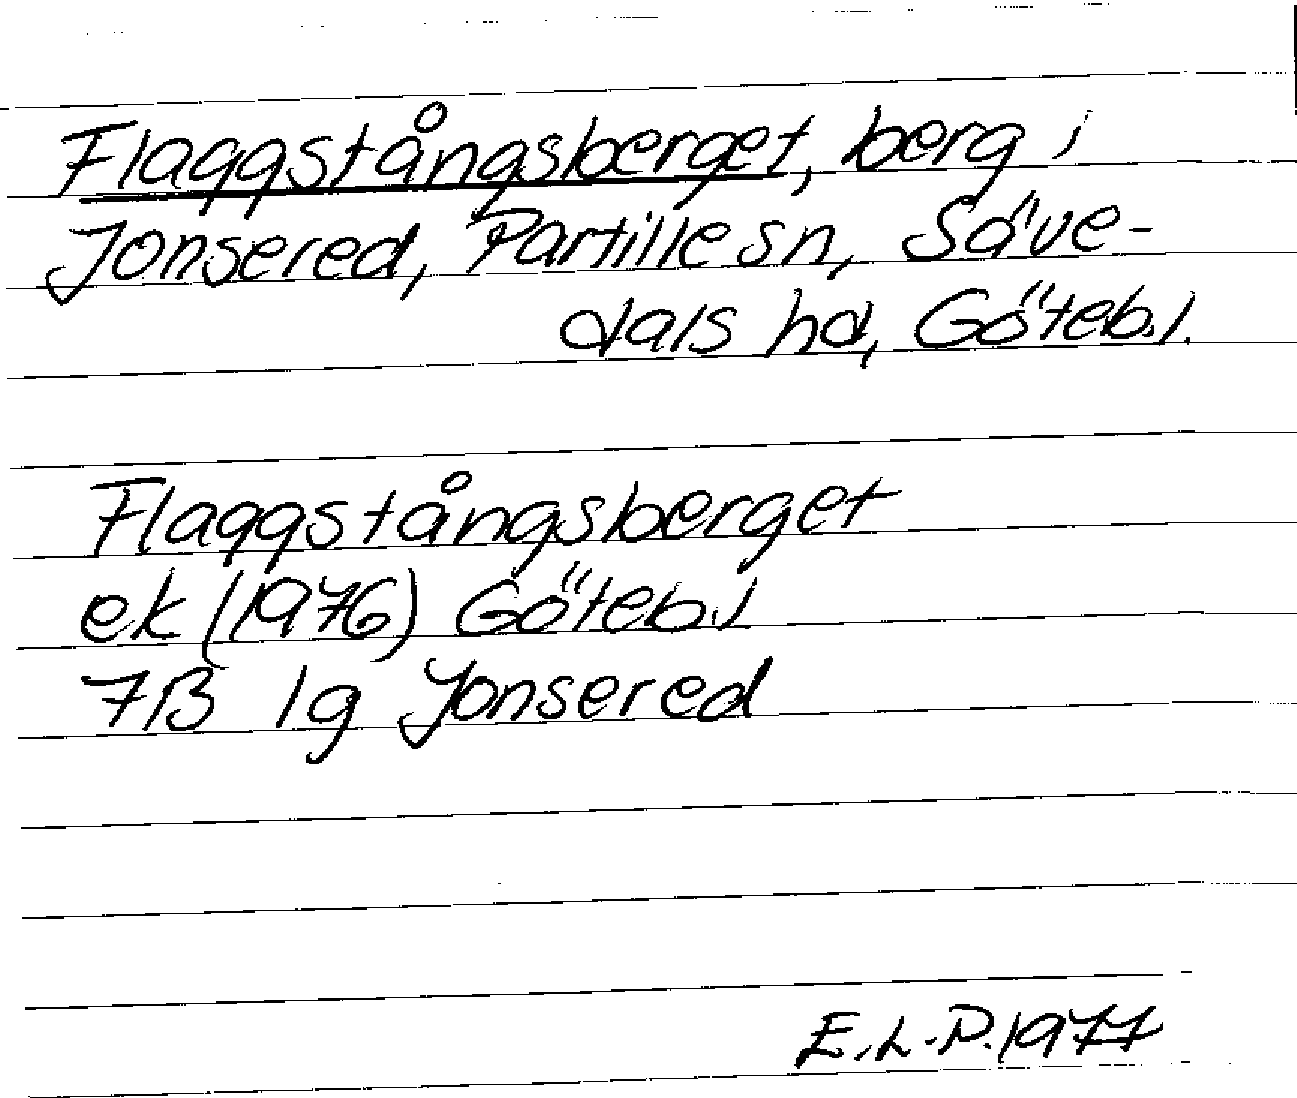 Flaggstångsberget, berg i
Jonsered, Partille sn, Säve-
dals hd, Göteb.l.
Flaggstångsberget
ek (1976) Göteb.l
7B 1g Jonsered
E.L.P. 1977